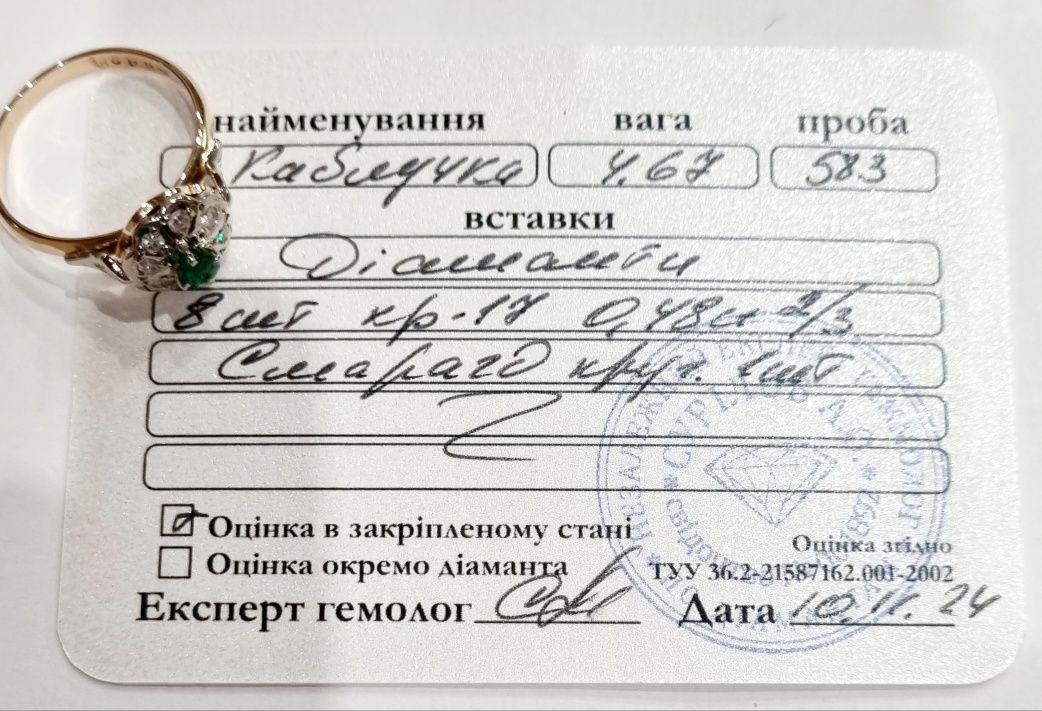 найменування вага проба
Каблучка 4.67 583
вставки
Діаманти
8 шт кр-17 0,48ct 2/3
Смарагд круг. 1шт
Оцінка в закріпленому стані
Оцінка окремо діаманта
Оцінка згідно
ТУУ 36.2-21587162.001-2002
Експерт гемолог Дата 10.11.24
НЕЗАЛЕЖНИЙ ГЕММОЛОГ